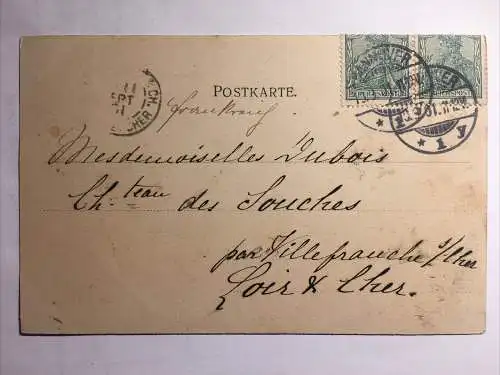 POSTKARTE.
Frankreich
Mesdemoiselles Dubois
Ch.teau des Souches
par Villefranche s/Cher
Loir & Cher.